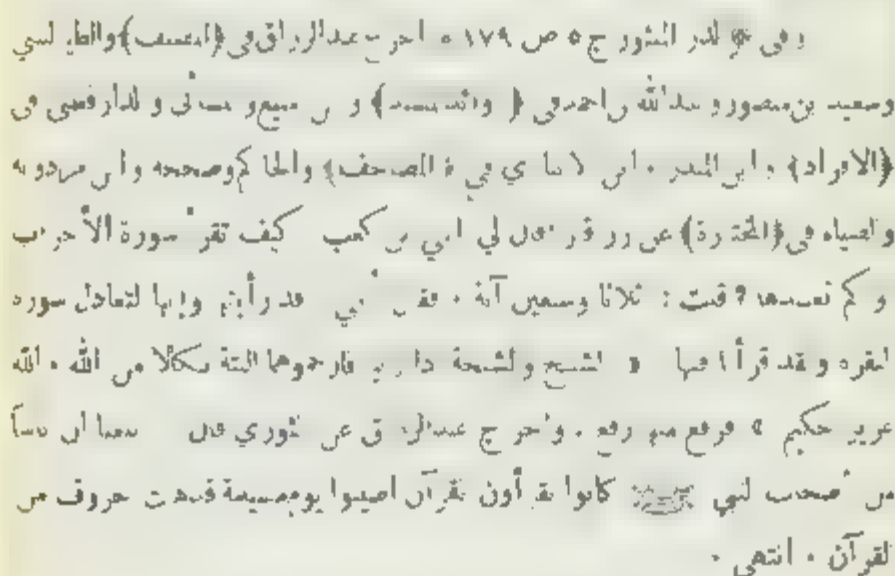 وفي ﴿ الدر المنثور ج ٥ ص ١٧٩ ﴾ اخرج عبدالرزاق في ﴿المصنف﴾ والطيالسي
وسعيد بن منصور وعبدالله بن احمد في ﴿ زوائد المسند ﴾ وابن منيع والنسائي والدارقطني في
﴿الافراد﴾ وابن المنذر وابن الانباري في ﴿ المصاحف ﴾ والحاكم وصححه وابن مردويه
والضياء في ﴿المختارة﴾ عن زر قال قال لي أبي بن كعب كيف تقرأ سورة الأحزاب
او كم تعدها ؟ قلت : ثلاثا وسبعين آية . فقال أبي قد رأيتها وإنها لتعادل سورة
البقرة ولقد قرأنا فيها « الشيخ والشيخة إذا زنيا فارجموهما البتة نكالا من الله والله
عزيز حكيم » فرفع منها ما رفع . وأخرج عبدالرزاق عن الثوري قال بلغنا ان ناسا
من أصحاب النبي كانوا يقرأون القرآن اصيبوا يوم مسيلمة فذهبت حروف من
القرآن . انتهى .